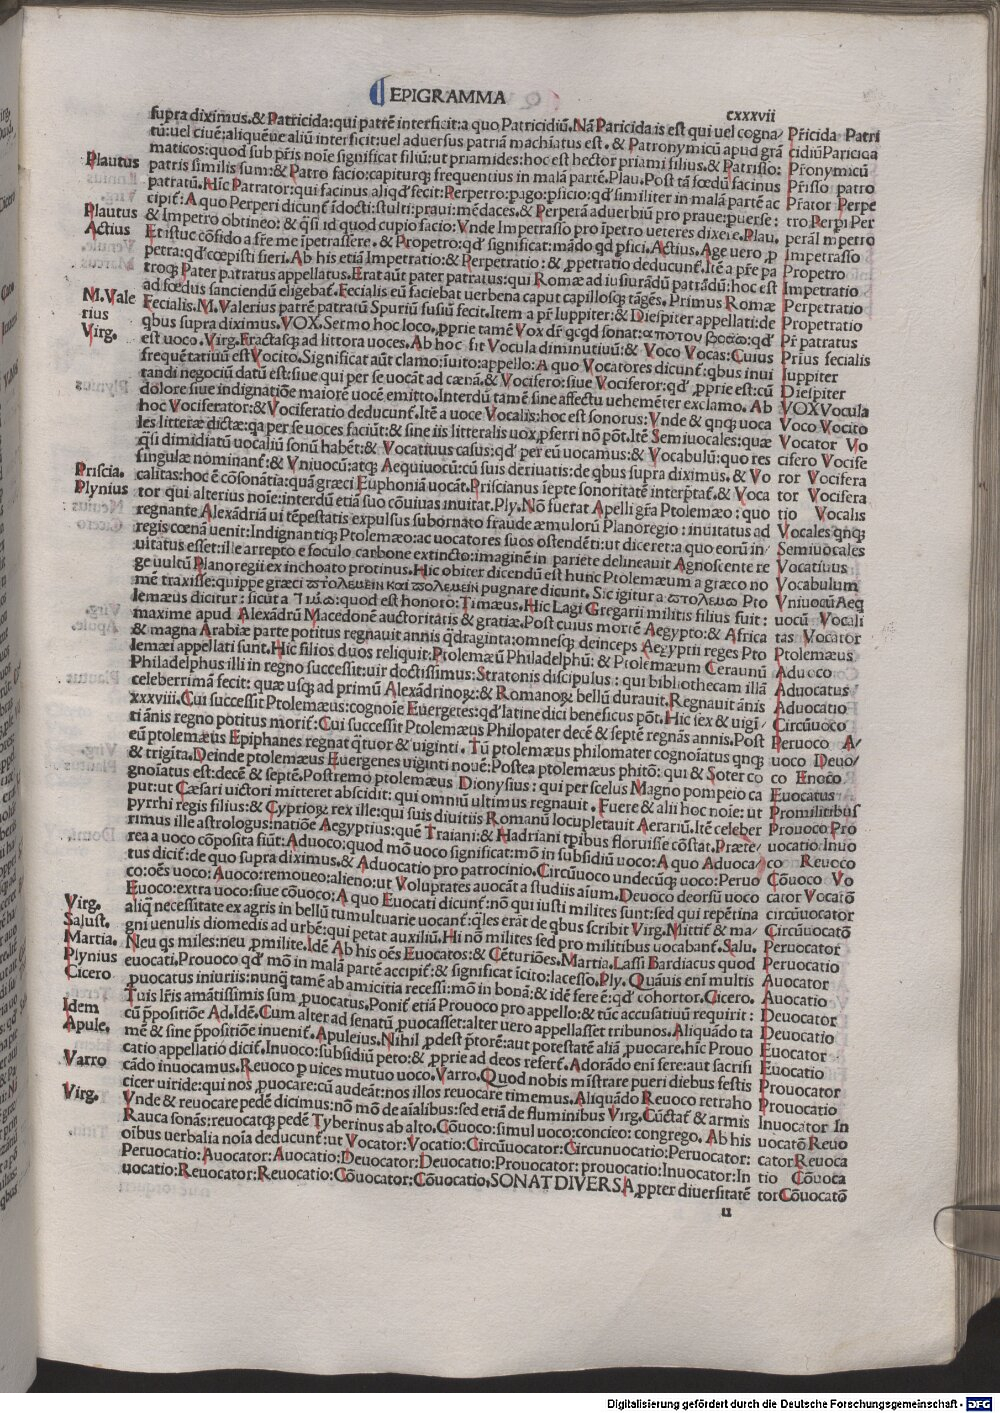 EPIGRAMMA
cxxxvii
supra diximus.& Patricida:qui patrē interficit:a quo Patricidiū.Nā Paricida is est qui uel cogna/
tū:uel ciuē:aliquēue aliū interficit:uel aduersus patriā machiatus est. & Patronymicū apud grā
maticos:quod sub p̄ris noīe significat filiū:ut priamides:hoc est hector priami filius.& Patrisso:
patris similis sum:& Patro facio:capiturq; frequentius in malā partē.Plau.Post tā fœdū facinus
patratū.Hic Patrator:qui facinus aliqd̓ fecit:Perpetro:pago:pficio:qd̓ similiter in malā partē ac
cipit̄.A quo Perperi dicunt̄ īdocti:stulti:praui:mēdaces.& Perperā aduerbiū pro praue:puerse:
& Impetro obtineo:& q̄si id quod cupio facio:Vnde Impetrasso pro īpetro ueteres dixere.Plau.
Et istuc cōfido a fr̄e me īpetrassere.& Propetro:qd̓ significat:mādo qd̓ pfici.Actius.Age uero,p
petra:qd̓ cœpisti fieri.Ab his etiā Impetratio:& Perpetratio:& ,ppetratio deducunt̄.Itē a pr̄e pa
troq; Pater patratus appellatus.Erat aūt pater patratus:qui Romæ ad iusiurādū patrādū:hoc est
ad fœdus sanciendū eligebat̄.Fecialis eū faciebat uerbena caput capillosq; tāgēs.Primus Romæ
Fecialis.M.Valerius patrē patratū Spuriū fusiū fecit.Item a pr̄ Iuppiter:& Diespiter appellati:de
qbus supra diximus.VOX.Sermo hoc loco.,pprie tamē Vox dr̄ qcqd sonat:απο του βοαω:qd̓
est uoco.Virg.Fractasq; ad littora uoces.Ab hoc fit Vocula diminutiuū:& Voco Vocas:Cuius
frequētatiuū est Vocito.Significat aūt clamo:īuito:appello:A quo Vocatores dicunt̄:qbus inui
tandi negociū datū est:siue qui per se uocāt ad cænā.& Vocifero:siue Vociferor:qd̓ ,pprie est:cū
dolore siue indignatiōe maiore uocē emitto.Interdū tamē sine affectu uehemēter exclamo. Ab
hoc Vociferator:& Vociferatio deducunt̄.Itē a uoce Vocalis:hoc est sonorus:Vnde & qnq; uoca
les litteræ dictæ:qa per se uoces faciūt:& sine iis litteralis uox,pferri nō pōt.Itē Semiuocales:quæ
q̄si dimidiatū uocaliū sonū habēt:& Vocatiuus casus:qd̓ per eū uocamus:& Vocabulū:quo res
singulæ nominant̄:& Vniuocū:atq; Aequiuocū:cū suis deriuatis:de qbus supra diximus. & Vo
calitas:hoc ē cōsonātia:quā græci Euphoniā uocāt.Priscianus īepte sonoritatē interptat̄.& Voca
tor qui alterius noīe:interdū etiā suo cōuiuas inuitat.Ply.Nō fuerat Apelli gr̄a Ptolemæo:quo
regnante Alexādriā ui tēpestatis expulsus subornato fraude æmulorū Planoregio:inuitatus ad
regis cœnā uenit:Indignantiq; Ptolemæo:ac uocatores suos ostendēti:ut diceret:a quo eorū in/
uitatus esset:ille arrepto e foculo carbone extincto:imaginē in pariete delineauit Agnoscente re
ge uultū Planoregii ex inchoato protinus.Hic obiter dicendū est hunc Ptolemæum a græco no
mē traxisse:quippe græci πτολεμειν και πτολεμειν pugnare dicunt. Sic igitur a πτολεμω Pto
maxime apud Alexādrū Macedonē auctoritatis & gratiæ.Post cuius mortē Aegypto:& Africa
& magna Arabiæ parte potitus regnauit annis q̄draginta:omnesq; deinceps Aegyptii reges Pto
lemæi appellati sunt.Hic filios duos reliquit:Ptolemæū Philadelphū:& Ptolemæum Ceraunū
Philadelphus illi in regno successit:uir doctissimus:Stratonis discipulus:qui bibliothecam illā
celeberrimā fecit: quæ usq; ad primū Alexādrinoꝝ:& Romanoꝝ bellū durauit.Regnauit ānis
xxxviii.Cui successit Ptolemæus:cognoīe Euergetes:qd̓ latine dici beneficus pōt.Hic sex & uigi/
ti ānis regno potitus morit̄:Cui successit Ptolemæus Philopater decē & septē regnās annis.Post
eū ptolemæus Epiphanes regnat q̄tuor & uiginti. Tū ptolemæus philomater cognoīatus qnq;
& trigīta.Deinde ptolemæus Euergenes uiginti nouē:Postea ptolemæus phitō: qui & Soter co
gnoīatus est:decē & septē.Postremo ptolemæus Dionysius: qui per scelus Magno pompeio ca
put:ut Cæsari uictori mitteret abscidit: qui omniū ultimus regnauit. Fuere & alii hoc noīe: ut
Pyrrhi regis filius:& Cyprioꝝ rex ille:qui suis diuitiis Romanū locupletauit Aerariū.Itē celeber
rimus ille astrologus:natiōe Aegyptius:quē Traiani:& Hadriani tpībus floruisse cōstat. Præte/
rea a uoco cōposita fiūt:Aduoco:quod mō uoco significat:mō in subsidiū uoco:A quo Aduoca/
tus dicit̄:de quo supra diximus.& Aduocatio pro patrocinio.Circūuoco undecūq; uoco:Peruo
co:oēs uoco:Auoco:remoueo:alieno:ut Voluptates auocāt a studiis aīum.Deuoco deorsū uoco
Euoco:extra uoco:siue cōuoco:A quo Euocati dicunt̄:nō qui iusti milites sunt:sed qui repētina
aliq necessitate ex agris in bellū tumultuarie uocant̄:q̄les erāt de qbus scribit Virg.Mittit̄ & ma/
gni uenulis diomedis ad urbē:qui petat auxiliū.Hi nō milites sed pro militibus uocabant̄.Salu.
Neu qs miles:neu ,pmilite.Idē Ab his oēs Euocatos:& Cēturiōes.Martia.Lassi Bardiacus quod
euocati.Prouoco qd̓ mō in malā partē accipit̄:& significat īcito:lacesso.Ply. Quāuis enī multis
,puocatus iniuriis:nunq̄ tamē ab amicitia recessi:mō in bonā:& idē fere ē:qd̓ cohortor.Cicero.
Tuis lr̄is amātissimis sum ,puocatus.Ponit̄ etiā Prouoco pro appello:& tūc accusatiuū requirit:
cū p̄positiōe Ad.Idē.Cum alter ad senatū ,puocasset:alter uero appellasset tribunos.Aliquādo ta
mē & sine p̄positiōe inuenit̄.Apuleius.Nihil ,pdest p̄torē:aut potestatē aliā ,puocare.hīc Prouo
catio appellatio dicit̄.Inuoco:subsidiū peto:& ,pprie ad deos refert̄.Adorādo enī fere:aut sacrifi
cādo inuocamus.Reuoco p uices mutuo uoco.Varro.Quod nobis mīstrare pueri diebus festis
cicer uiride:qui nos ,puocare:cū audeāt:nos illos reuocare timemus.Aliquādo Reuoco retraho
Vnde & reuocare pedē dicimus:nō mō de aīalibus:sed etiā de fluminibus Virg.Cūctat̄ & armis
Rauca sonās:reuocatq; pedē Tyberinus ab alto.Cōuoco:simul uoco:concieo: congrego. Ab his
oībus uerbalia noīa deducunt̄:ut Vocator:Vocatio:Circūuocator:Circunuocatio:Peruocator:
Peruocatio:Auocator:Auocatio:Deuocator:Deuocatio:Prouocator:prouocatio:Inuocator:In
uocatio:Reuocator:Reuocatio:Cōuocator:Cōuocatio.SONAT DIVERSA,ppter diuersitatē
Plautus
Plautus
Actius
M.Vale
rius
Virg.
Priscia.
Plynius
Virg.
Salust.
Martia.
Plynius
Cicero
Idem
Apule.
Varro
Virg.
Pr̄icida Patri
cidiū Paricida
Pr̄onymicū
Pr̄isso patro
Pr̄ator Perpe
tro Perpi Per
perā Impetro
Impetrasso
Propetro
Impetratio
Perpetratio
Propetratio
Pr̄ patratus
Prius fecialis
Iuppiter
Diespiter
VOX Vocula
Voco Vocito
Vocator Vo
cifero Vocife
ror Vocifera
tor Vocifera
tio Vocalis
Vocales qn̄q;
Semiuocales
Vocatiuus
Vocabulum
Vniuocū Aeq
uocū Vocali
tas Vocator
Ptolemæus
Aduoco
Aduocatus
Aduocatio
Circūuoco
Peruoco A/
uoco Deuo/
co Euoco
Euocatus
Promilitibus
Prouoco Pro
uocatio Inuo
co Reuoco
Cōuoco Vo
cator Vocatō
circūuocator
Circūuocatō
Peruocator
Peruocatio
Auocator
Auocatio
Deuocator
Deuocatio
Euocator
Euocatio
Prouocator
Prouocatio
Inuocator In
uocatō Reuo
cator Reuoca
tio Cōuoca
tor Cōuocatō
u
Digitalisierung gefördert durch die Deutsche Forschungsgemeinschaft - DFG